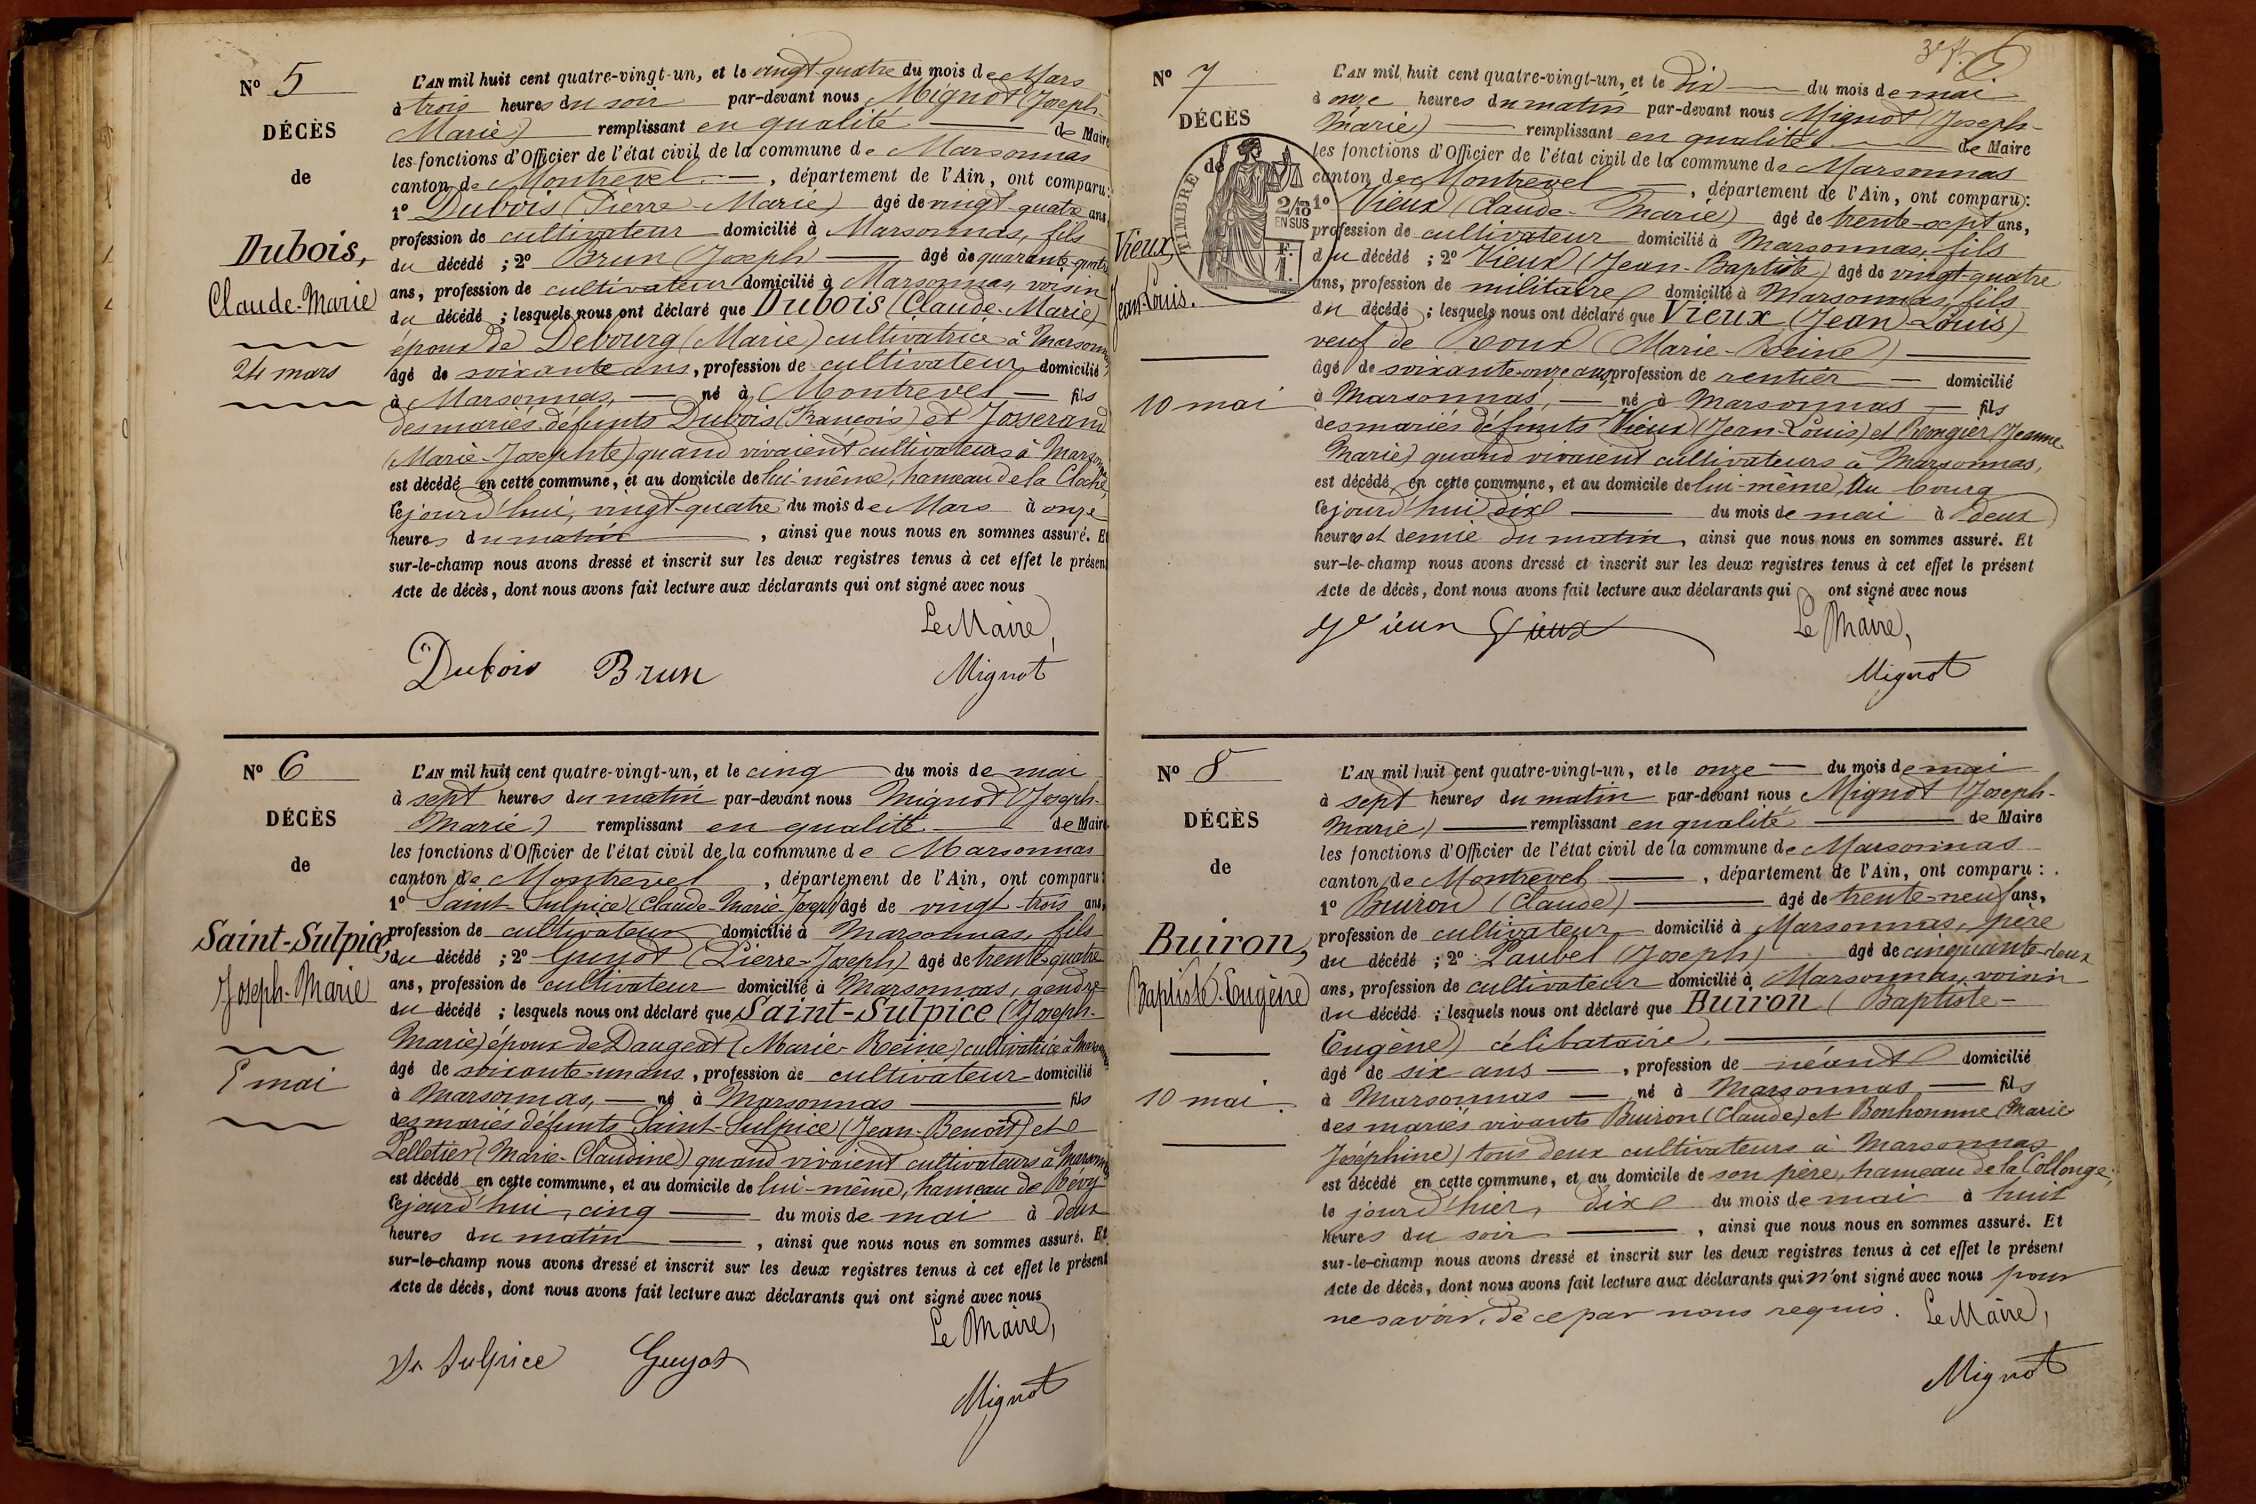 Nº 5
DÉCÈS
de
Dubois,
Claude-Marie
24 mars
L'AN mil huit cent quatre-vingt-un, et le vingt-quatre du mois de Mars
à trois heures du soir par-devant nous Mignot (Joseph-
Marie) remplissant en qualité de Maire
les fonctions d'Officier de l'état civil de la commune de Marsonnas
canton de Montrevel, département de l'Ain, ont comparu:
1º Dubois (Pierre-Marie) âgé de vingt-quatre ans,
profession de cultivateur domicilié à Marsonnas, fils
du décédé ; 2º Brun (Joseph) âgé de quarante-quatre
ans, profession de cultivateur domicilié à Marsonnas, voisin
du décédé ; lesquels nous ont déclaré que Dubois (Claude-Marie)
époux de Debourg (Marie) cultivatrice à Marsonnas
âgé de soixante ans, profession de cultivateur domicilié
à Marsonnas, né à Montrevel fils
des mariés défunts Dubois (François) et Josserand
(Marie-Josephte) quand vivaient cultivateurs à Marsonnas
est décédé en cette commune, et au domicile de lui-même, hameau de la Cloche,
le jourd'hui, vingt-quatre du mois de Mars à onze
heures du matin, ainsi que nous nous en sommes assuré. Et
sur-le-champ nous avons dressé et inscrit sur les deux registres tenus à cet effet le présent
Acte de décès, dont nous avons fait lecture aux déclarants qui ont signé avec nous
Le Maire,
Dubois Brun Mignot
Nº 6
DÉCÈS
de
Saint-Sulpice,
Joseph-Marie
5 mai
L'AN mil huit cent quatre-vingt-un, et le cinq du mois de mai
à sept heures du matin par-devant nous Mignot (Joseph-
Marie) remplissant en qualité de Maire
les fonctions d'Officier de l'état civil de la commune de Marsonnas
canton de Montrevel, département de l'Ain, ont comparu:
1º Saint-Sulpice (Claude-Marie-Joseph) âgé de vingt-trois ans,
profession de cultivateur domicilié à Marsonnas, fils
du décédé ; 2º Guyot (Pierre-Joseph) âgé de trente-quatre
ans, profession de cultivateur domicilié à Marsonnas, gendre
du décédé ; lesquels nous ont déclaré que Saint-Sulpice (Joseph-
Marie) époux de Daugeat (Marie-Reine) cultivatrice à Marsonnas
âgé de soixante-un ans, profession de cultivateur domicilié
à Marsonnas, né à Marsonnas fils
des mariés défunts Saint-Sulpice (Jean-Benoît) et
Pelletier (Marie-Claudine) quand vivaient cultivateurs à Marsonnas
est décédé en cette commune, et au domicile de lui-même, hameau de Bévy
le jourd'hui, cinq du mois de mai à deux
heures du matin, ainsi que nous nous en sommes assuré. Et
sur-le-champ nous avons dressé et inscrit sur les deux registres tenus à cet effet le présent
Acte de décès, dont nous avons fait lecture aux déclarants qui ont signé avec nous
Le Maire,
St Sulpice Guyot
Mignot
6
Nº 7
DÉCÈS
de
TIMBRE
2/10
EN SUS
F.
1
Vieux,
Jean-Louis.
10 mai
L'AN mil huit cent quatre-vingt-un, et le dix du mois de mai
à onze heures du matin par-devant nous Mignot (Joseph-
Marie) remplissant en qualité de Maire
les fonctions d'Officier de l'état civil de la commune de Marsonnas
canton de Montrevel, département de l'Ain, ont comparu:
1º Vieux (Claude-Marie) âgé de trente-sept ans,
profession de cultivateur domicilié à Marsonnas, fils
du décédé ; 2º Vieux (Jean-Baptiste) âgé de vingt-quatre
ans, profession de militaire domicilié à Marsonnas, fils
du décédé ; lesquels nous ont déclaré que Vieux (Jean-Louis)
veuf de Roux (Marie-Reine)
âgé de soixante-onze ans, profession de rentier domicilié
à Marsonnas, né à Marsonnas fils
des mariés défunts Vieux (Jean-Louis) et Rongier (Jeanne
Marie) quand vivaient cultivateurs à Marsonnas,
est décédé en cette commune, et au domicile de lui-même, Au bourg
le jourd'hui dix du mois de mai à deux
heures et demie du matin, ainsi que nous nous en sommes assuré. Et
sur-le-champ nous avons dressé et inscrit sur les deux registres tenus à cet effet le présent
Acte de décès, dont nous avons fait lecture aux déclarants qui ont signé avec nous
Vieux Vieux Le Maire,
Mignot
Nº 8
DÉCÈS
de
Buiron,
Baptiste-Eugène
10 mai.
L'AN mil huit cent quatre-vingt-un, et le onze du mois de mai
à sept heures du matin par-devant nous Mignot (Joseph-
Marie) remplissant en qualité de Maire
les fonctions d'Officier de l'état civil de la commune de Marsonnas
canton de Montrevel, département de l'Ain, ont comparu :
1º Buiron (Claude) âgé de trente-neuf ans,
profession de cultivateur domicilié à Marsonnas, père
du décédé ; 2º Paubel (Joseph) âgé de cinquante-deux
ans, profession de cultivateur domicilié à Marsonnas, voisin
du décédé ; lesquels nous ont déclaré que Buiron (Baptiste-
Eugène) célibataire,
âgé de six ans, profession de néant domicilié
à Marsonnas né à Marsonnas fils
des mariés vivants Buiron (Claude) et Bonhomme (Marie
Joséphine) tous deux cultivateurs à Marsonnas
est décédé en cette commune, et au domicile de son père, hameau de la Collonge,
le jourd'hier, dix du mois de mai à huit
heures du soir, ainsi que nous nous en sommes assuré. Et
sur-le-champ nous avons dressé et inscrit sur les deux registres tenus à cet effet le présent
Acte de décès, dont nous avons fait lecture aux déclarants qui n'ont signé avec nous pour
ne savoir, de ce par nous requis. Le Maire,
Mignot